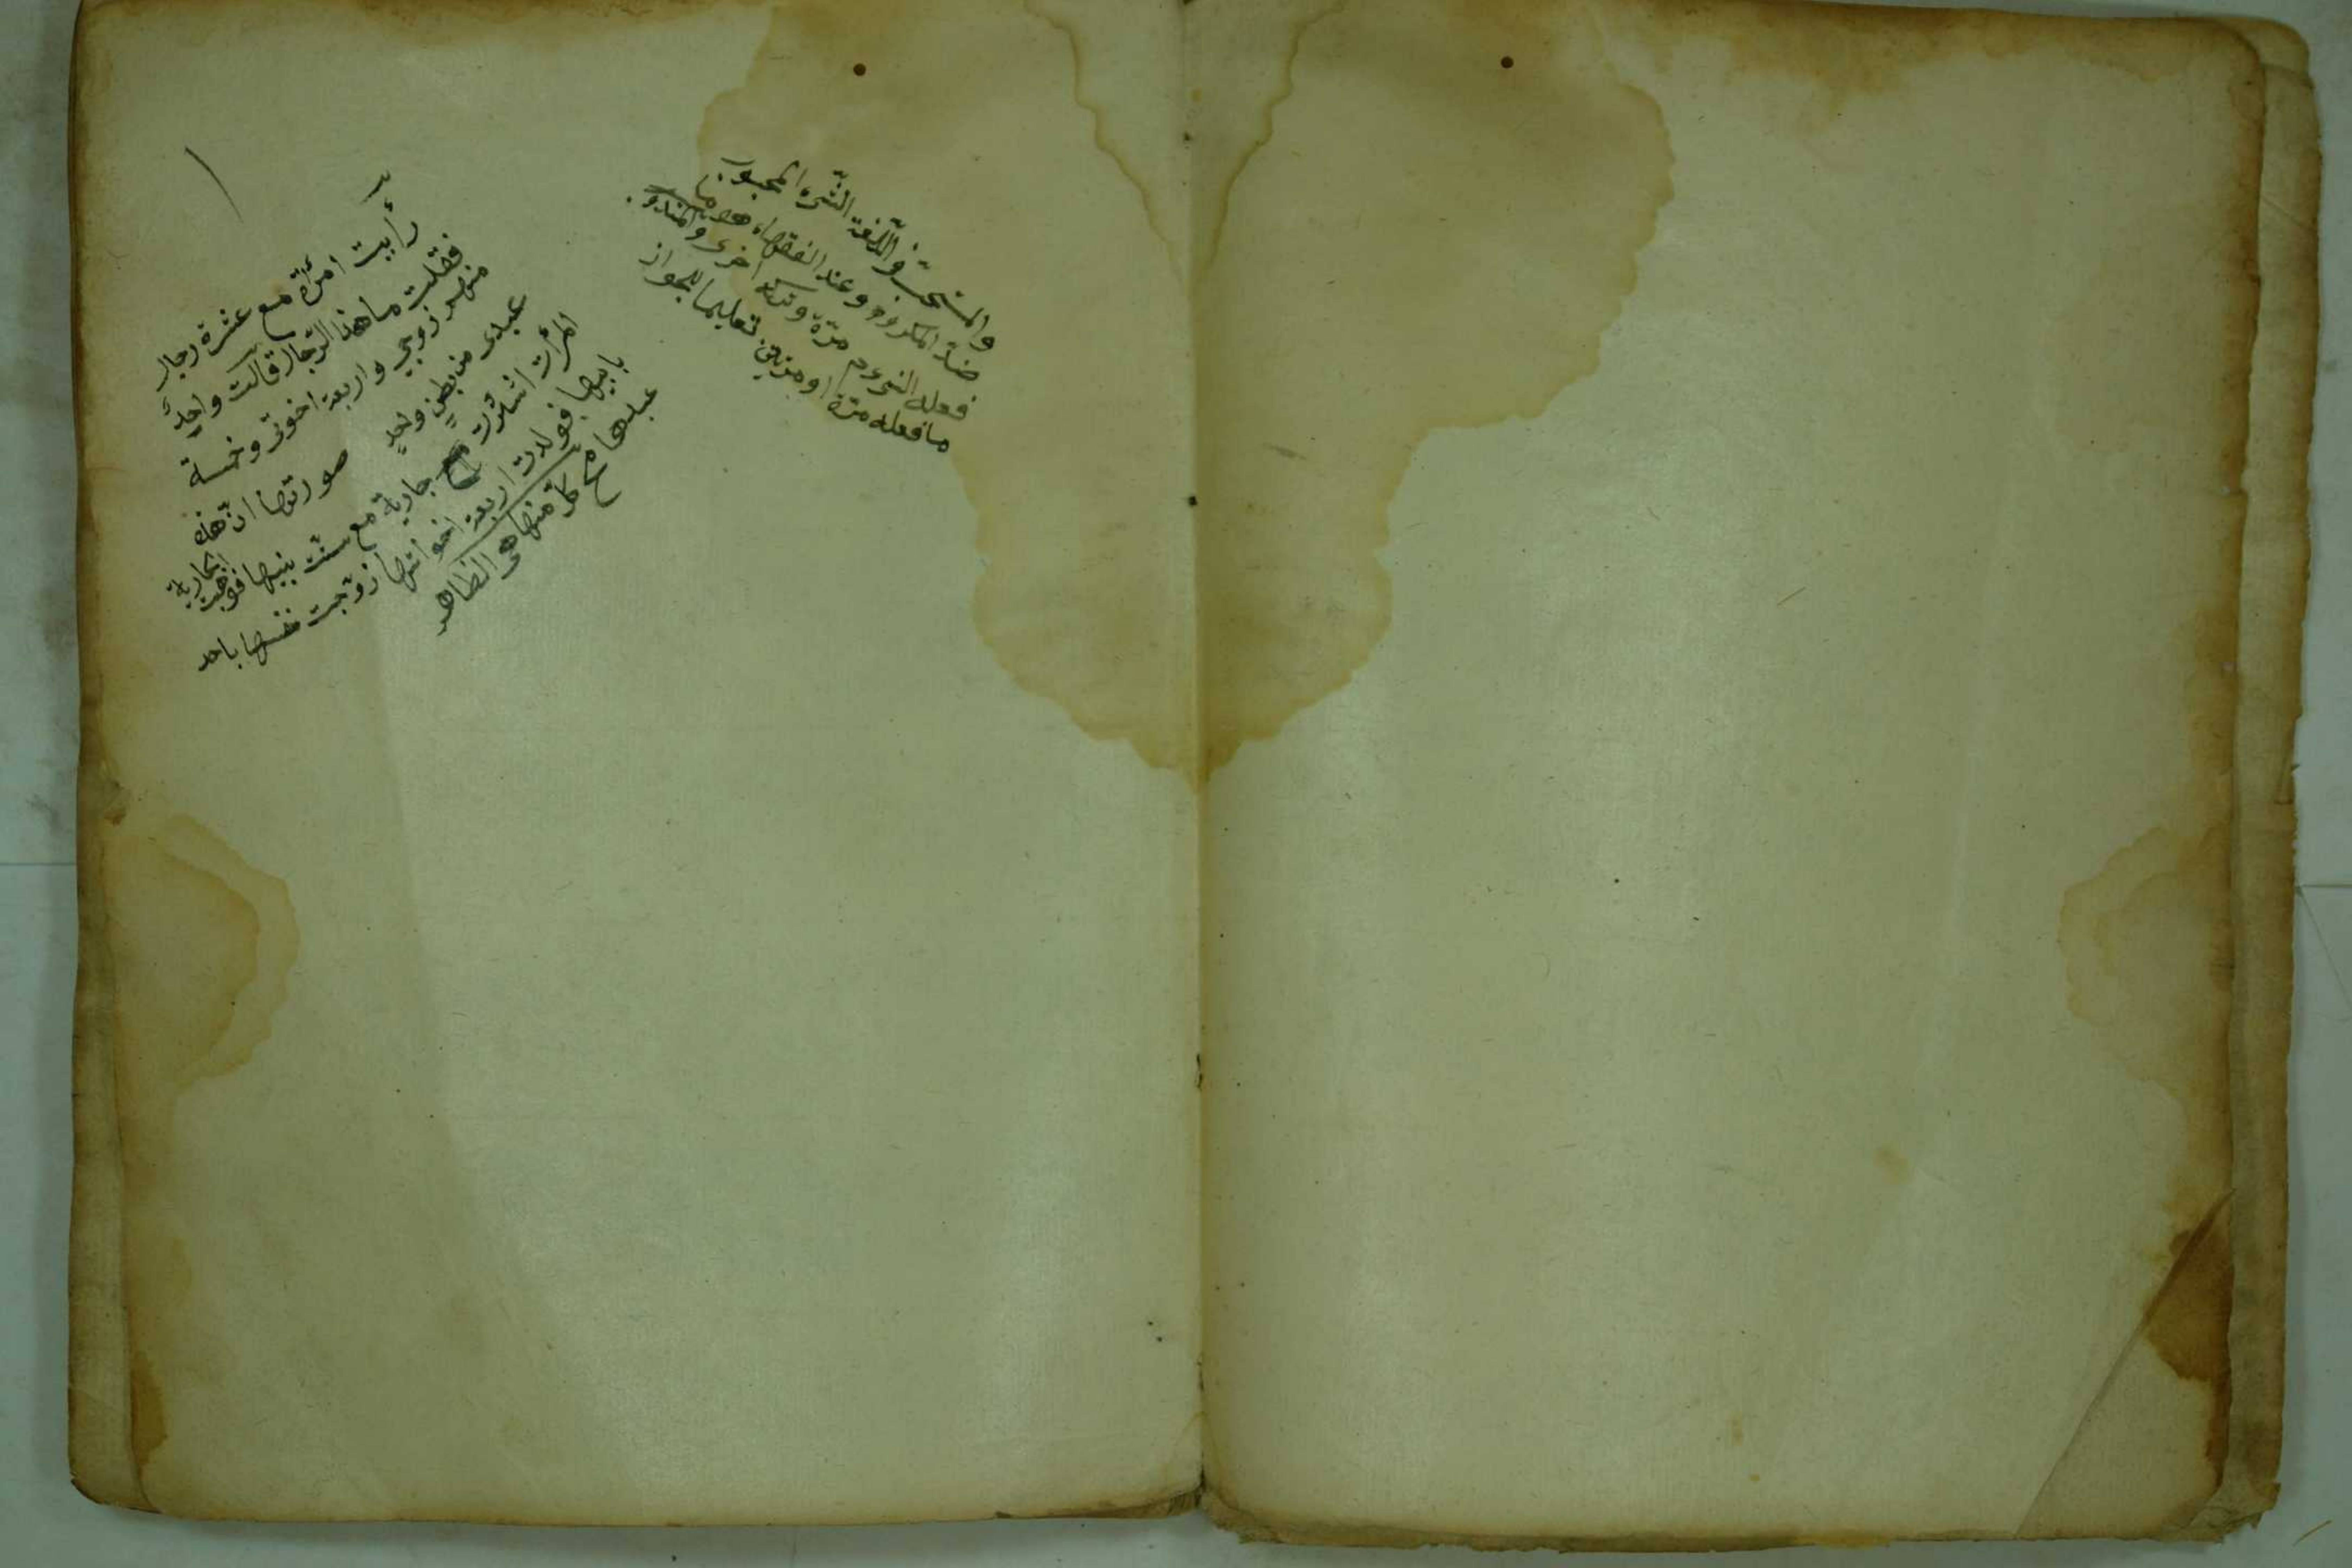 والمستحب في اللغة الشيء المحبوب
ضد المكروه وعند الفقهاء هو ما
فعله النبي عم مرّة وتركه اخرى والمندوب
ما فعله مرّة او مرتين تعليما للجواز
رأيت امرأة مع عشرة رجال
فقلت ما هذا الرّجال قالت واحدٌ
منهم زوجي واربعة اخوتى وخمسة
عبدى من بطنٍ واحدٍ صورتها انّ هذه
امرأت اشترت جارية مع ست بنيها فزوجت الجارية
بابيها فولدت اربعة اخواتها زوّجت نفسها باحد
عبدها كل منها هى الظاهر